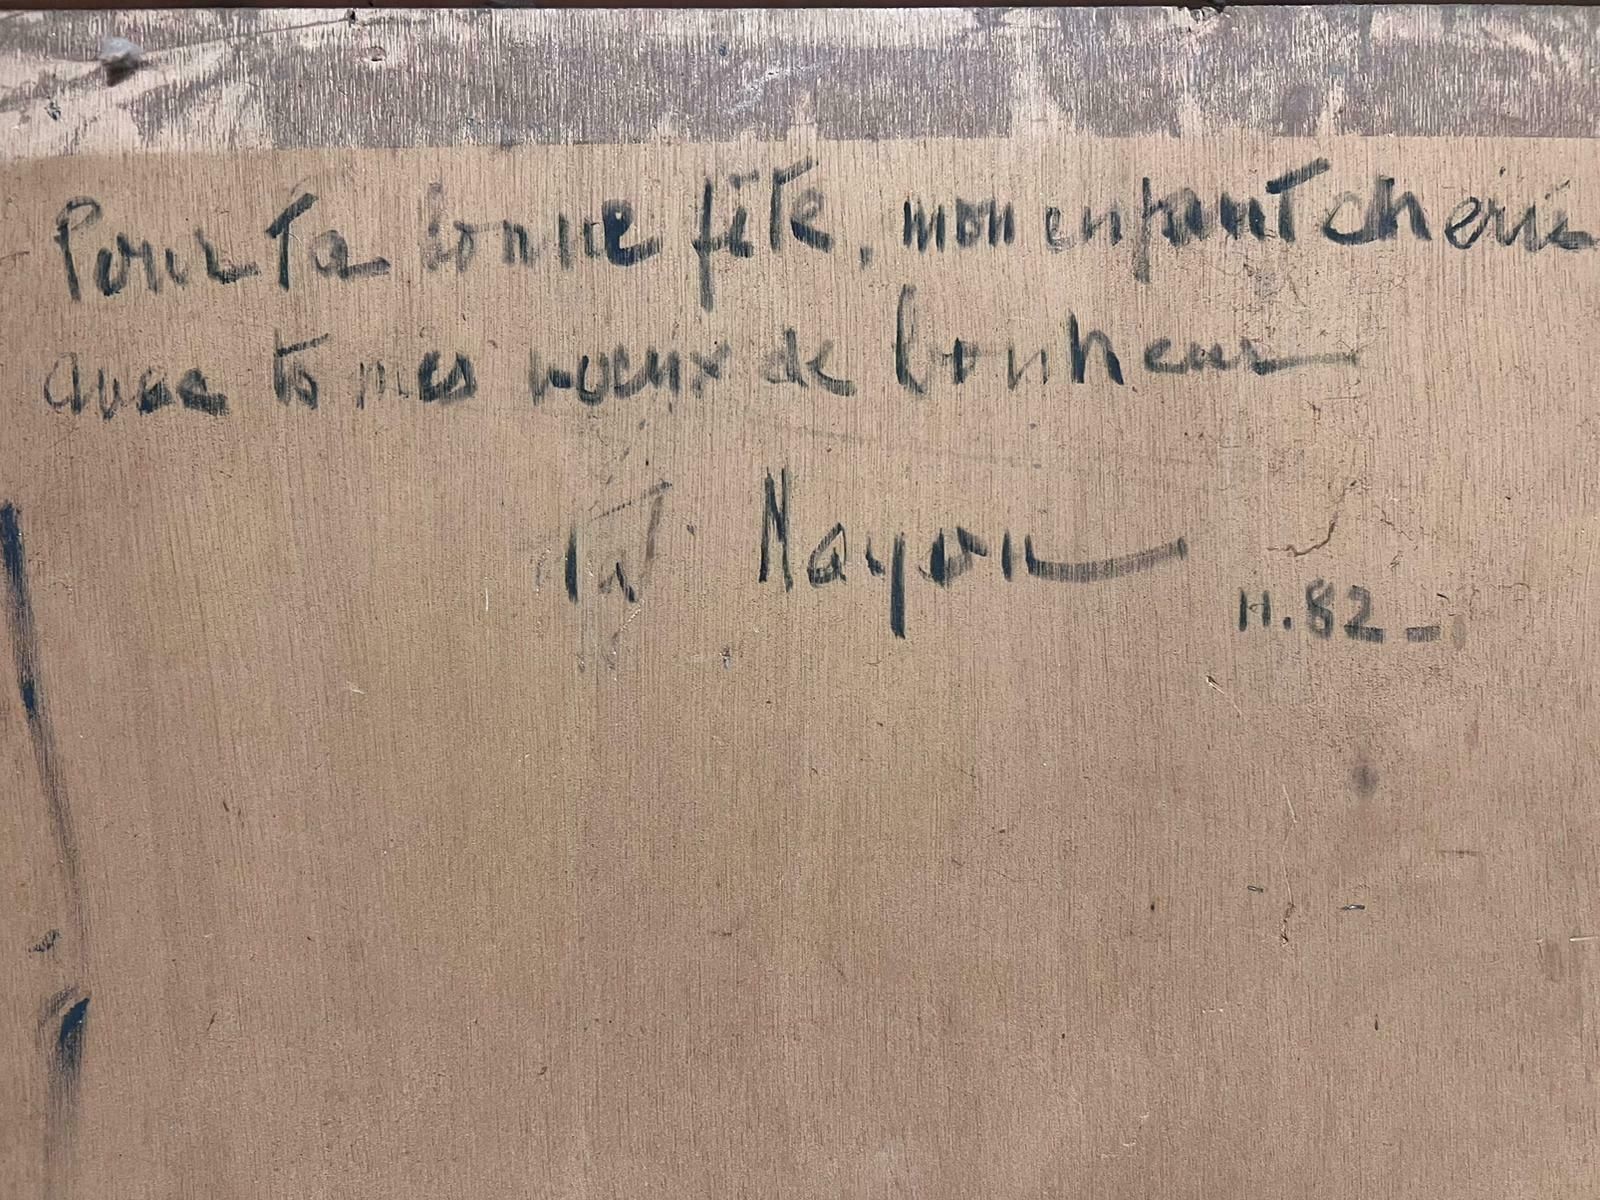 Pour ta bonne fête, mon enfant cherie
avec ts mes voeux de bonheur
Ta Nayou
H.82-